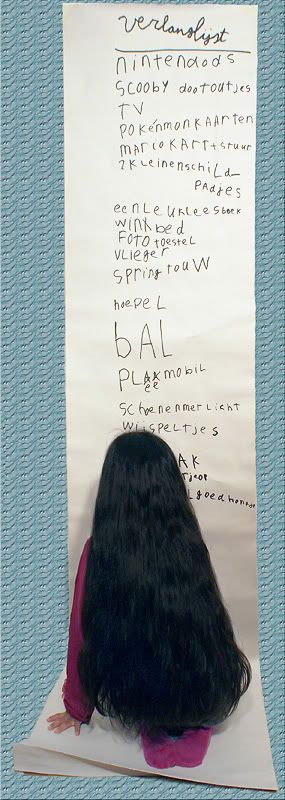 verlanglijst
nintendods
scooby dootoutjes
TV
POKéMONKAARTEN
MARCOKART+stuur
2KLeinenschild
PADjes
eenLeukleesboek
WINXbed
FOTOtoestel
VLIEGER
SPRINGTOUW
hoepeL
bAL
PLAKmobiL
ee
SCHoenenmerlicht
Wiispeltjes
AK